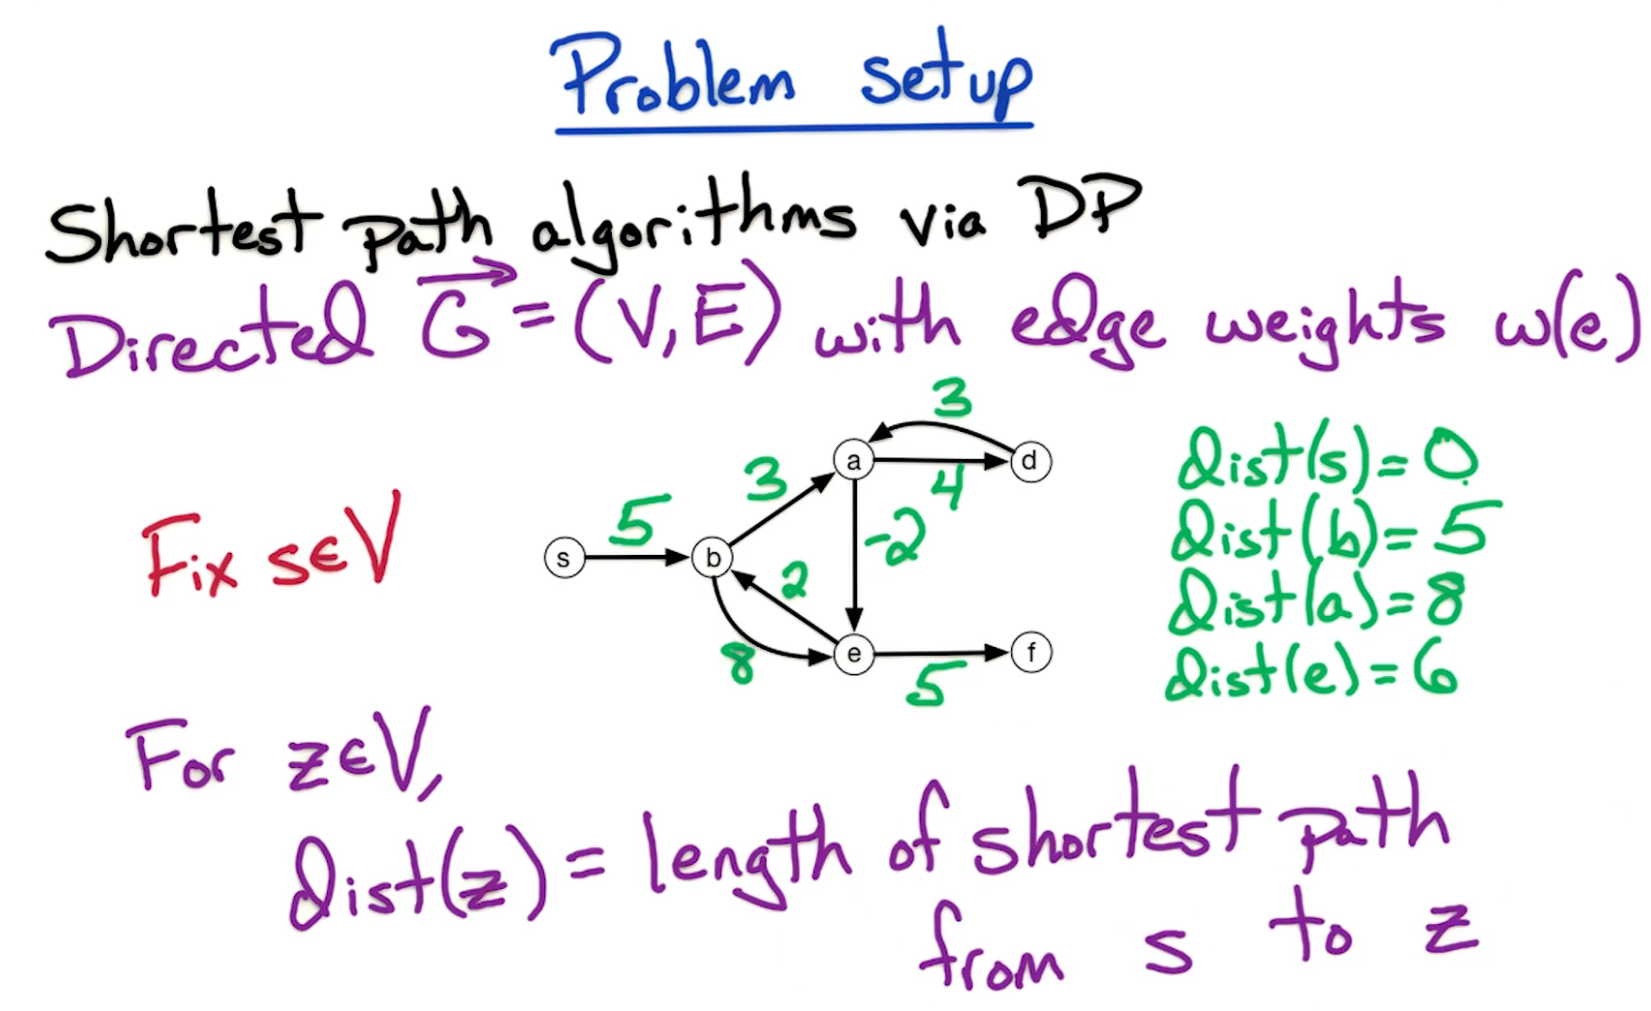 Problem setup
Shortest path algorithms via DP
Directed G⃗ = (V, E) with edge weights w(e)
3
a
d
dist(s) = 0
3
4
5
dist(b) = 5
Fix s∈V
-2
s
b
2
dist(a) = 8
8
e
f
5
dist(e) = 6
For z∈V,
dist(z) = length of shortest path
from s to z